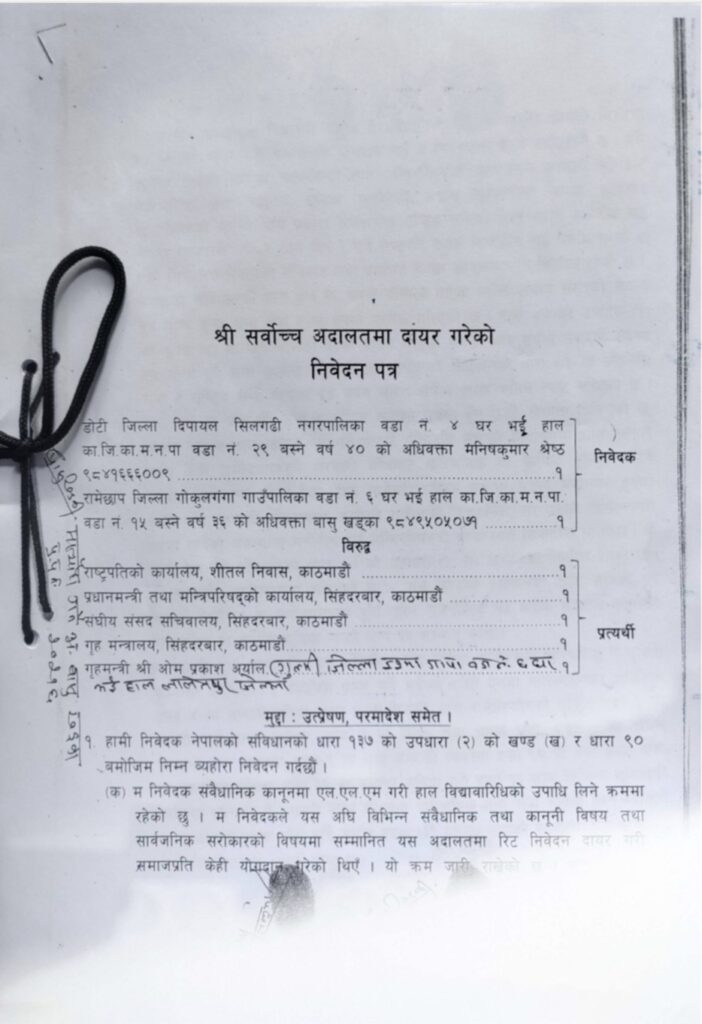 श्री सर्वोच्च अदालतमा दायर गरेको
निवेदन पत्र
डोटी जिल्ला दिपायल सिलगढी नगरपालिका वडा नं. ४ घर भई हाल
का.जि.का.म.न.पा वडा नं. २९ बस्ने वर्ष ४० को अधिवक्ता मनिषकुमार श्रेष्ठ
९८४१६६६००९ ........................ १
निवेदक
रामेछाप जिल्ला गोकुलगंगा गाउँपालिका वडा नं. ६ घर भई हाल का.जि.का.म.न.पा.
वडा नं. १५ बस्ने वर्ष ३६ को अधिवक्ता बासु खड्का ९८४९५०५०७१ ............ १
विरुद्ध
राष्ट्रपतिको कार्यालय, शीतल निवास, काठमाडौं ........................ १
प्रधानमन्त्री तथा मन्त्रिपरिषद्को कार्यालय, सिंहदरबार, काठमाडौं ............ १
संघीय संसद सचिवालय, सिंहदरबार, काठमाडौं ........................ १
प्रत्यर्थी
गृह मन्त्रालय, सिंहदरबार, काठमाडौं ........................ १
गृहमन्त्री श्री ओम प्रकाश अर्याल (गुल्मी जिल्ला वडा नं. ६ घर १
भई हाल ललितपुर जिल्ला
मुद्दा : उत्प्रेषण, परमादेश समेत ।
१. हामी निवेदक नेपालको संविधानको धारा १३७ को उपधारा (२) को खण्ड (ख) र धारा ९०
बमोजिम निम्न व्यहोरा निवेदन गर्दछौं ।
(क) म निवेदक संवैधानिक कानूनमा एल.एल.एम गरी हाल विद्यावारिधिको उपाधि लिने क्रममा
रहेको छु । म निवेदकले यस अघि विभिन्न संवैधानिक तथा कानूनी विषय तथा
सार्वजनिक सरोकारको विषयमा सम्मानित यस अदालतमा रिट निवेदन दायर गरी
समाजप्रति केही योगदान गरेको थिएँ । यो क्रम जारी